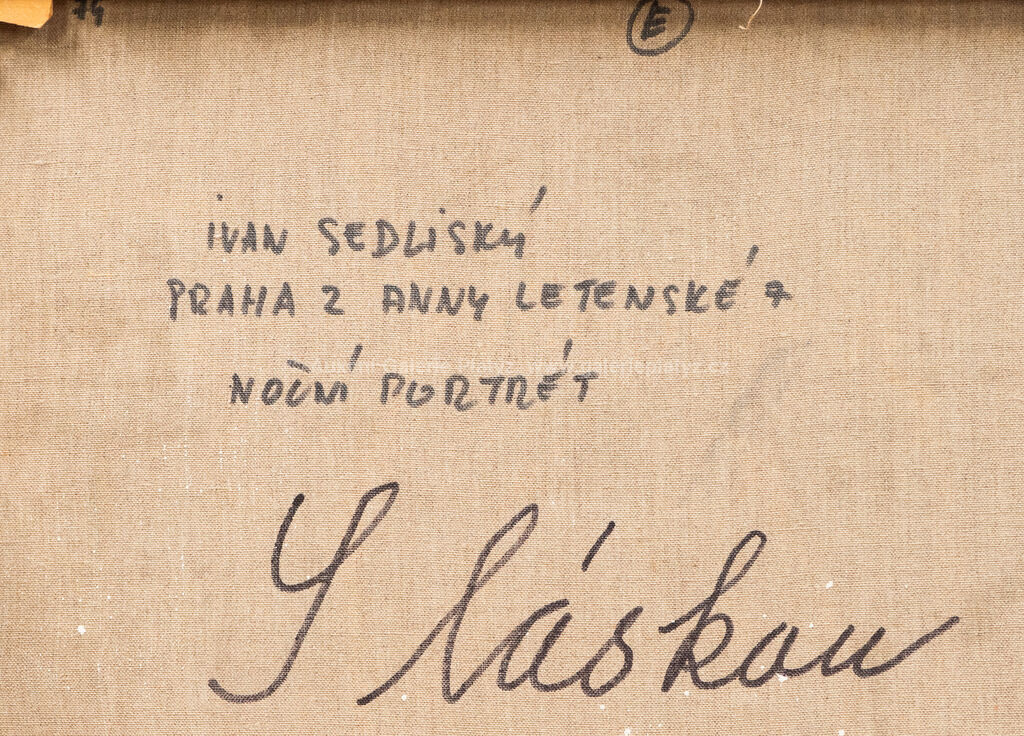 74
E
IVAN SEDLISKÝ
PRAHA 2 ANNY LETENSKÉ 7
NOČNÍ PORTRÉT
S láskou